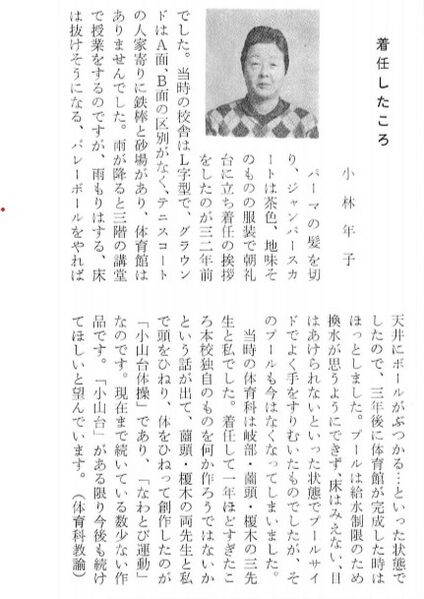 着任したころ
小林年子
パーマの髪を切
り、ジャンパースカ
ートは茶色、地味そ
のものの服装で朝礼
台に立ち着任の挨拶
をしたのが三二年前
でした。当時の校舎はL字型で、グラウン
ドはA面、B面の区別がなく、テニスコート
の人家寄りに鉄棒と砂場があり、体育館は
ありませんでした。雨が降ると三階の講堂
で授業をするのですが、雨もりはする、床
は抜けそうになる、バレーボールをやれば
天井にボールがぶつかる…といった状態で
したので、三年後に体育館が完成した時は
ほっとしました。プールは給水制限のため
換水が思うようにできず、床はみえない、目
はあけられないといった状態でプールサイ
ドでよく手をすりむいたものでしたが、そ
のプールも今はなくなってしまいました。
当時の体育科は岐部・薗頭・榎木の三先
生と私でした。着任して一年ほどすぎたこ
ろ本校独自のものを何か作ろうではないか
という話が出て、薗頭・榎木の両先生と私
で頭をひねり、体をひねって創作したのが
「小山台体操」であり、「なわとび運動」
なのです。現在まで続いている数少ない作
品です。「小山台」がある限り今後も続け
てほしいと望んでいます。（体育科教諭）